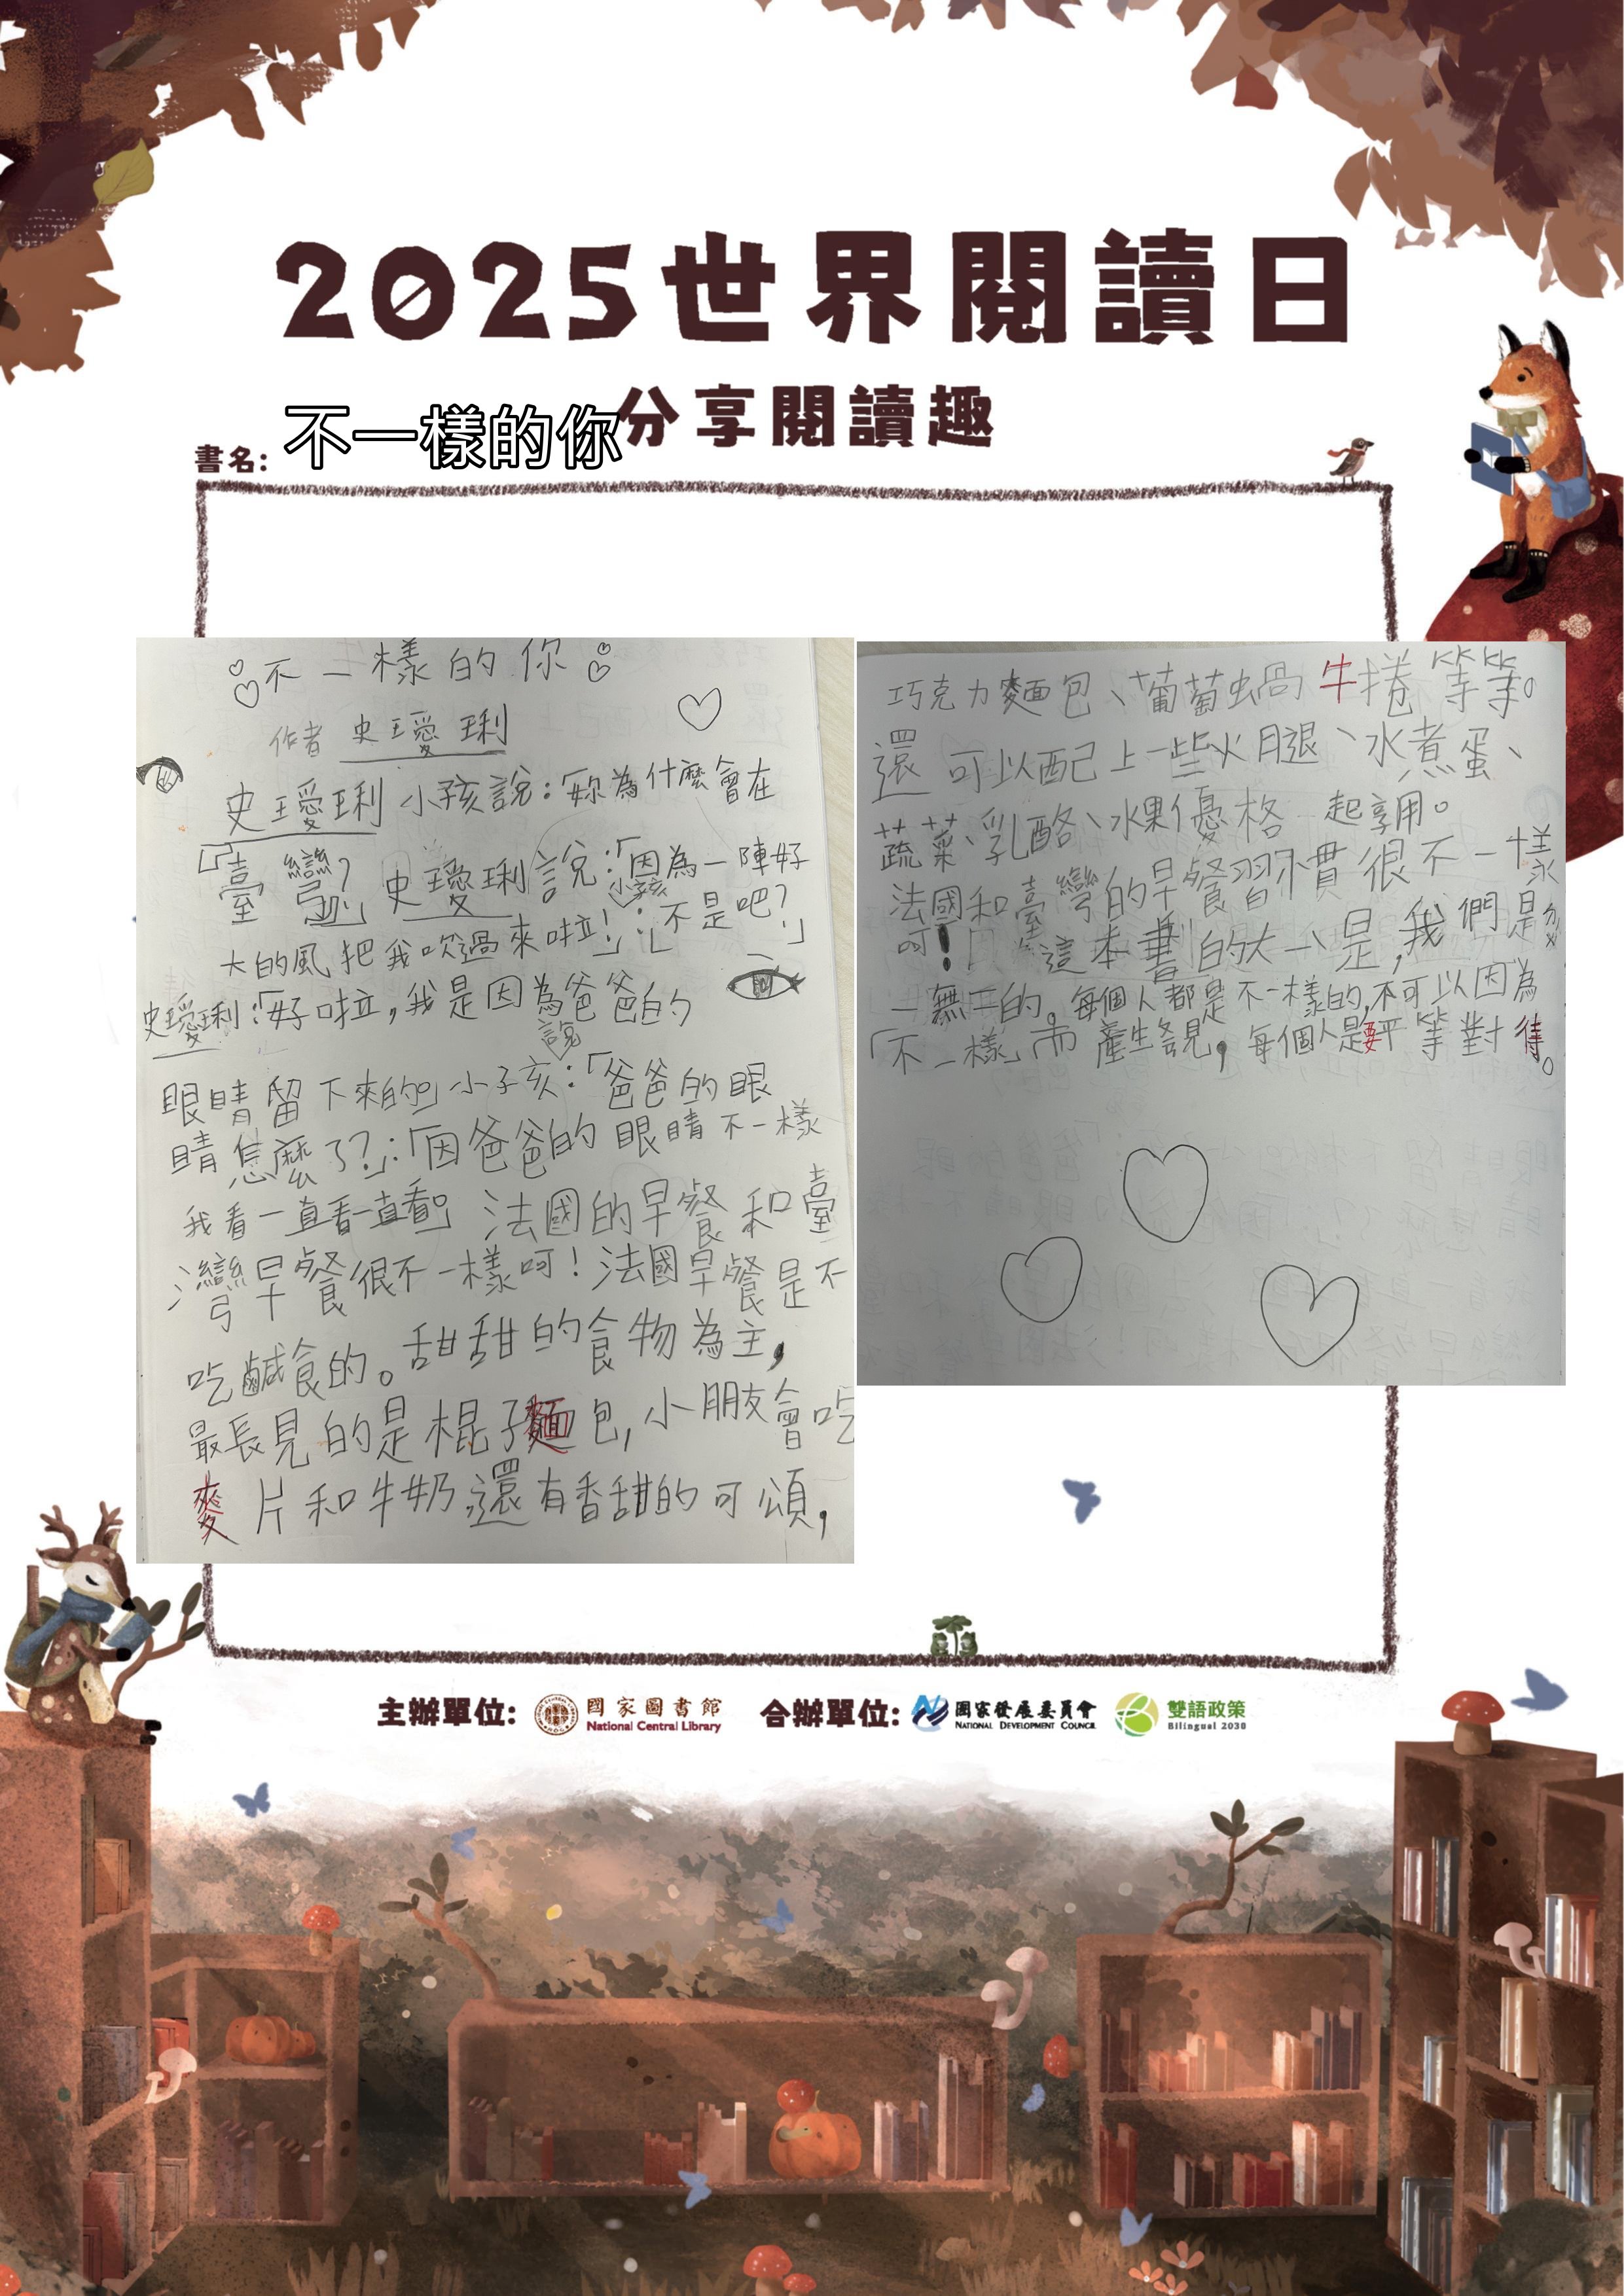 2025世界閱讀日
分享閱讀趣
書名: 不一樣的你
不一樣的你
作者 史璦琍
史璦琍 小孩說:「妳為什麼會在
「臺灣?」史璦琍說:「因為一陣好
小孩
大的風把我吹過來啦!」:「不是吧?」
史璦琍:「好啦,我是因為爸爸的
說
眼睛留下來的。」小孩:「爸爸的眼
睛怎麼了?」:「因爸爸的眼睛不一樣
我看一直看一直看。」法國的早餐和臺
灣早餐很不一樣呵!法國早餐是不
吃鹹食的。甜甜的食物為主,
最長見的是棍子麵包,小朋友會吃
麥片和牛奶,還有香甜的可頌,
巧克力麵包、葡萄蝸牛捲等等。
還可以配上一些火腿、水煮蛋、
蔬菜、乳酪、水果優格一起享用。
法國和臺灣的早餐習慣很不一樣
呵! 這本書的大一、是,我們是ㄉㄨ
一無二的。每個人都是不一樣的,不可以因為
「不一樣」而產生, 每個人是要平等對待。
主辦單位: 國家圖書館 National Central Library 合辦單位: 國家發展委員會 NATIONAL DEVELOPMENT COUNCIL 雙語政策 Bilingual 2030